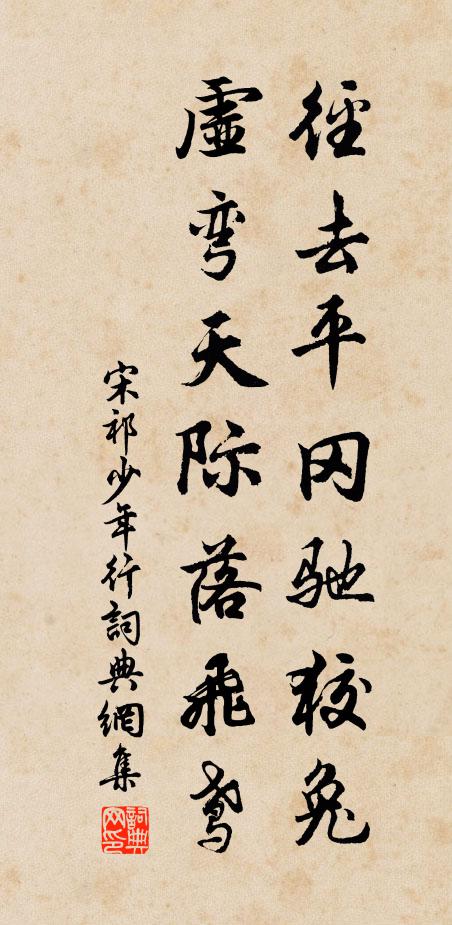 徑去平冈驰狡兔
虛弯天际落飛鸢
宋祁少年行詞典網集
詞典网印